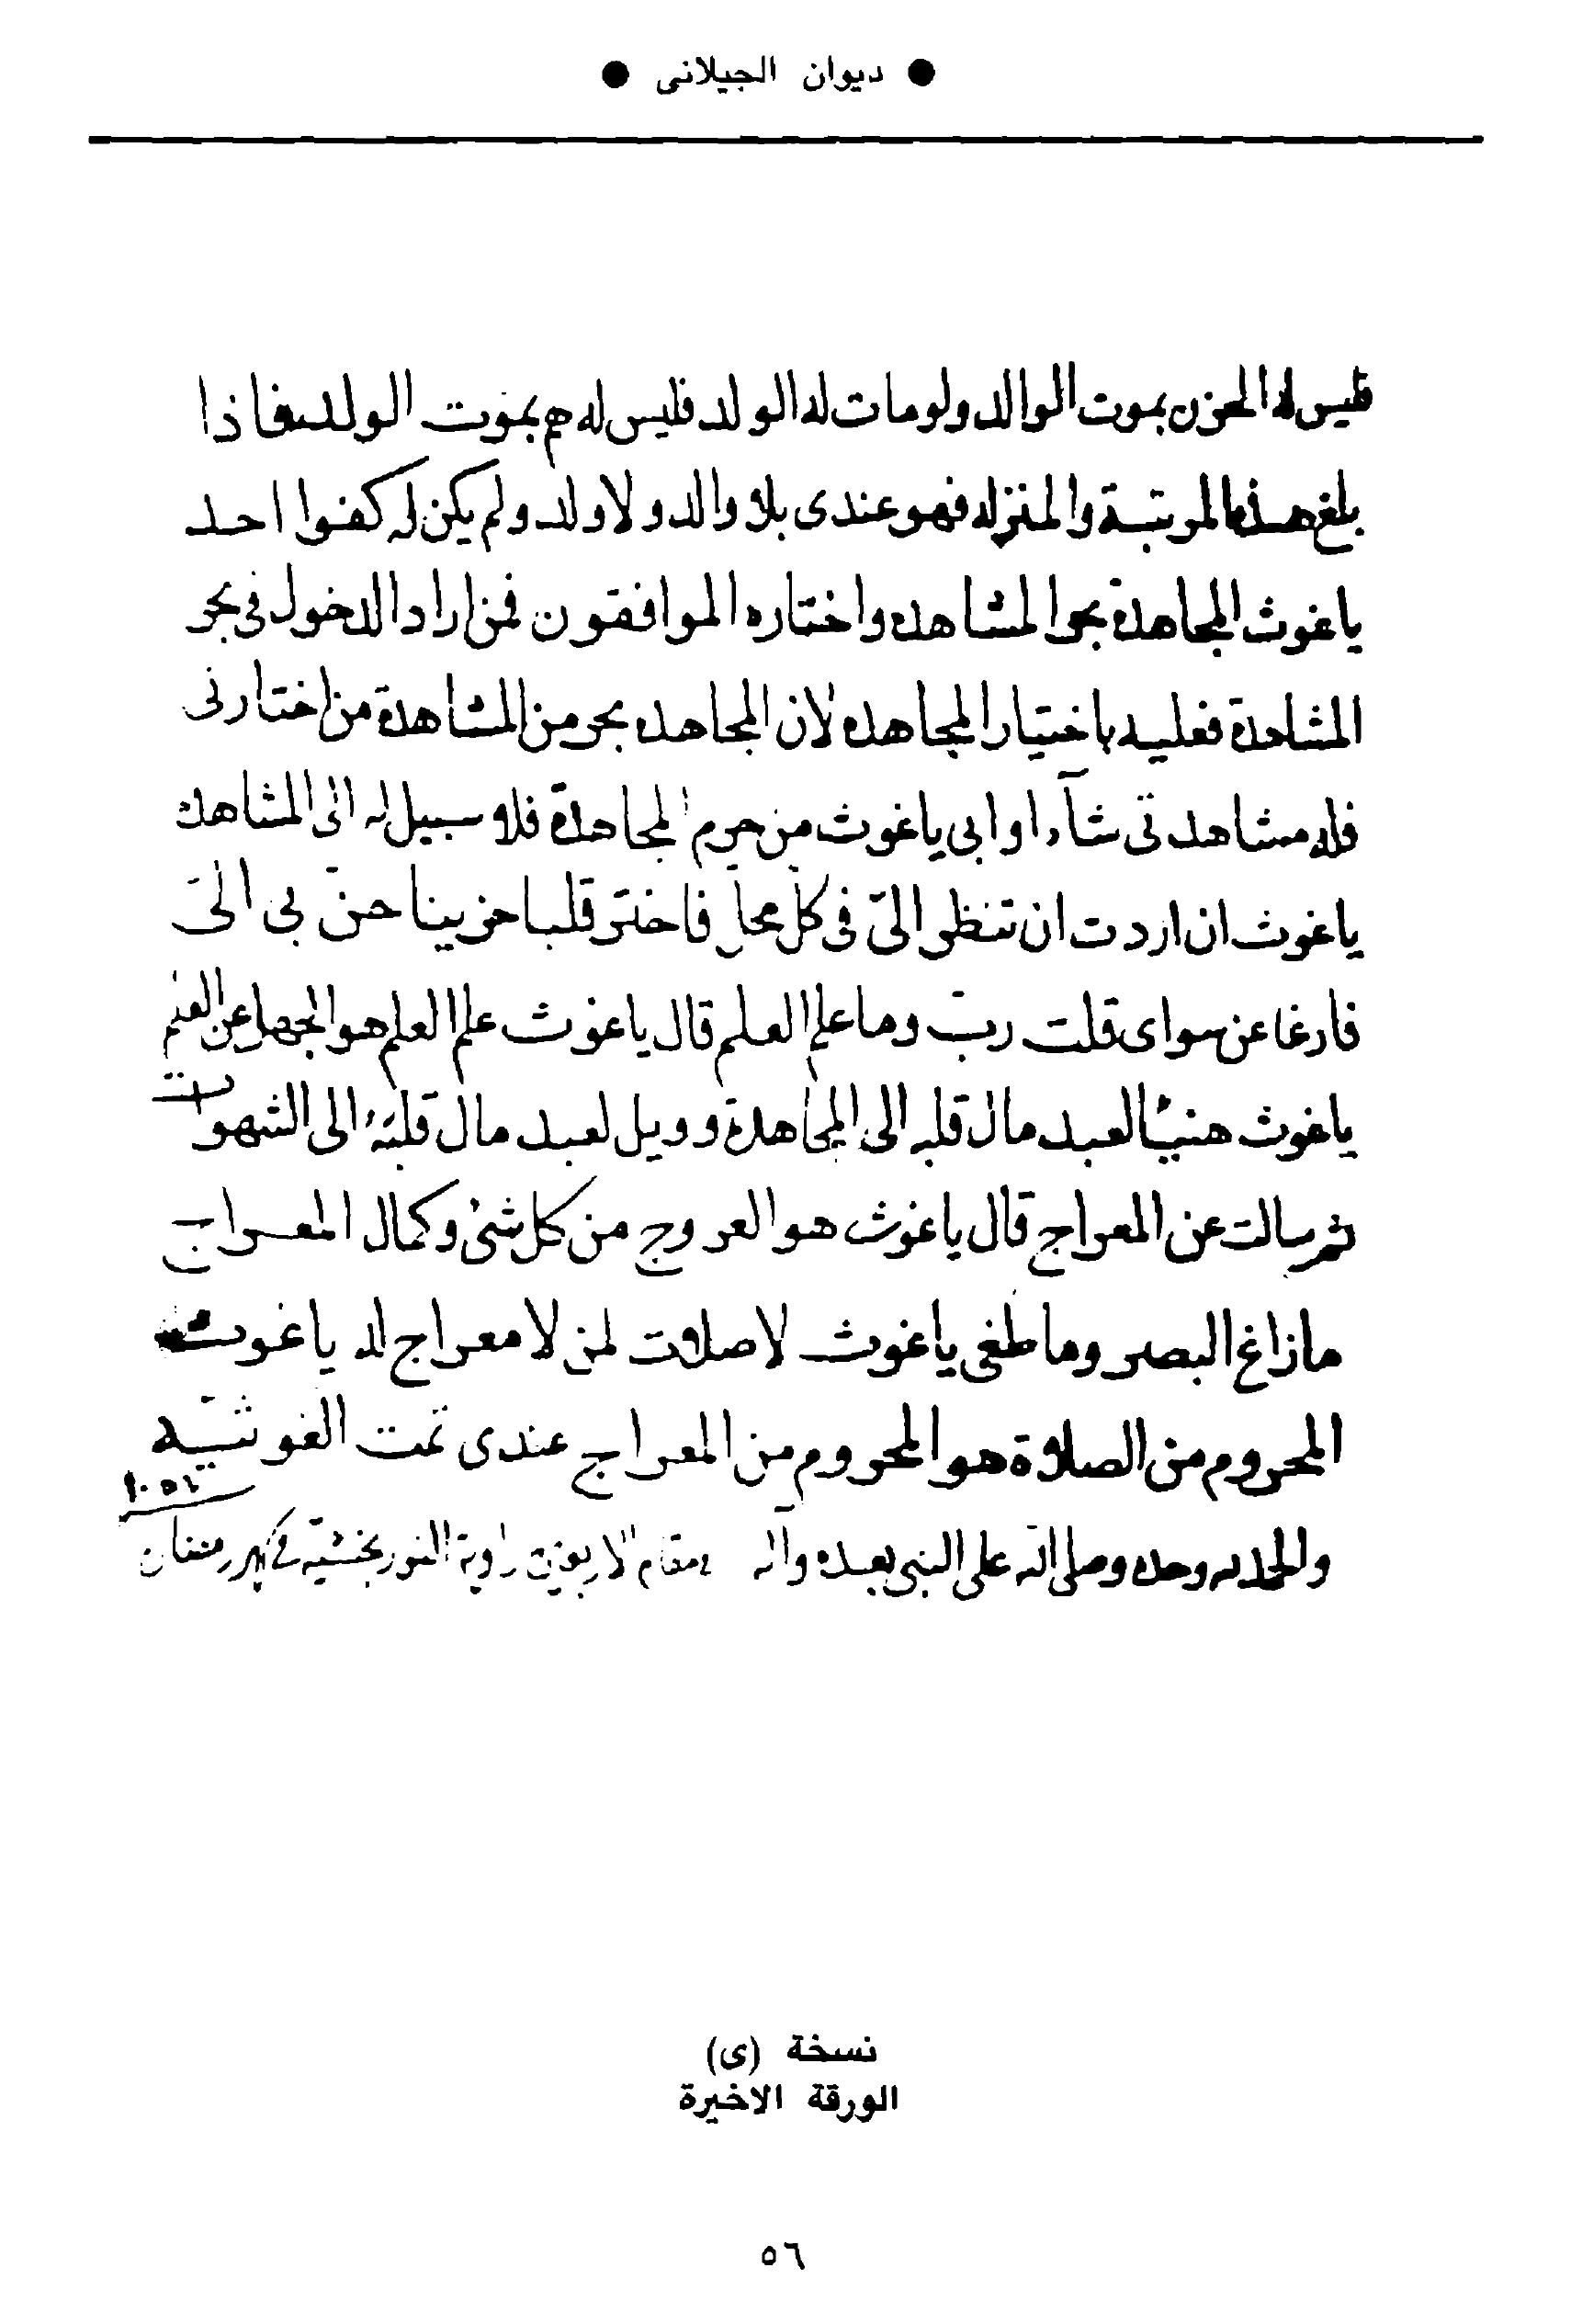 ديوان الجيلانى
فليس له الحزن بموت الوالد ولو مات له الولد فليس له هم بموت الولد فاذا
بلغ هذه المرتبة والمنزله فهو عندى بلا والد ولا ولد ولم يكن له كفوا احد
ياغوث المجاهدة بحر المشاهده واختاره الموافقون فمن اراد الدخول فى بحر
المشاهدة فعليه باختيار المجاهده لان المجاهده بحر من المشاهدة من اختارنى
فله مشاهدتى شآء او ابى ياغوث من حرم المجاهدة فلا سبيل له الى المشاهده
ياغوث ان اردت ان تنظر الىّ فى كل محل فاختر قلبا حزينا حنّ بى الىّ
فارغا عن سواى قلت ربّ وما علم العلم قال ياغوث علم العلم هو الجهل عن العلم
ياغوث هنيئا لعبد مال قلبه الى المجاهدة وويل لعبد مال قلبه الى الشهوات
ثم سالت عن المعراج قال ياغوث هو العروج من كل شئ وكمال المعراج
مازاغ البصر وما طغى ياغوث لاصلات لمن لا معراج له ياغوث
المحروم من الصلاة هو المحروم من المعراج عندى تمت الغوثية
١٠٥٦
والحمد لله وحده وصلى الله على النبى بعده وآله
نسخة (ى)
الورقة الاخيرة
٥٦